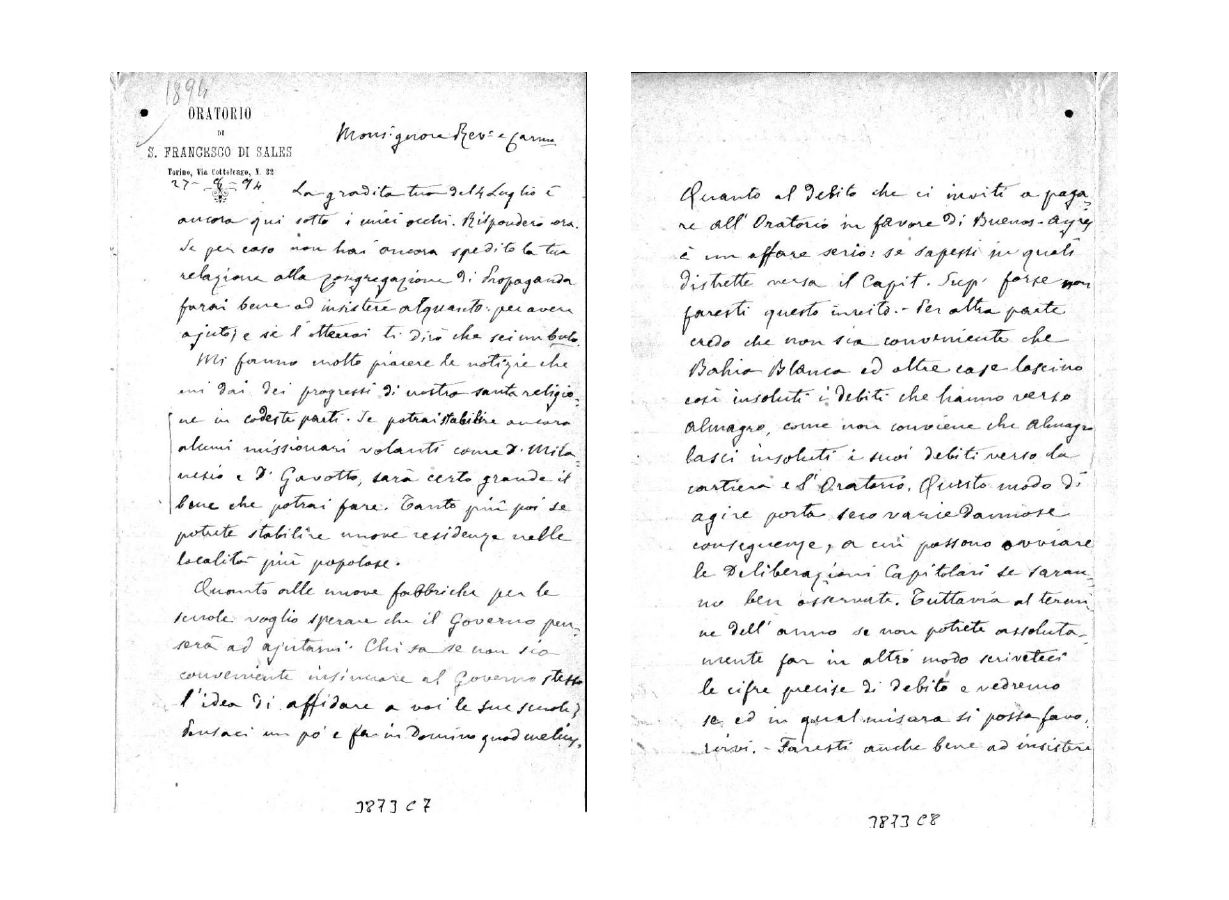 1894
ORATORIO
DI
S. FRANCESCO DI SALES
Torino, Via Cottolengo, N. 32
27- 8 - 94
Monsignore Rev.º e Carmo
La gradita tua del 4 Luglio è
ancora qui sotto i miei occhi. Rispondero ora.
Se per caso non hai ancora spedito la tua
relazione alla Congregazione di Propaganda
farai bene ad insistere alquanto per avere
ajuto; e se l'otterrai ti dirò che sei un bulo.
Mi fanno molto piacere le notizie che
mi dai dei progressi di nostra santa religio-
ne in codeste parti. Se potrai stabilire ancora
alcuni missionari volanti come D. Mila-
nesio e D. Gavotto, sarà certo grande il
bene che potrai fare. Tanto più poi se
potrete stabilire nuove residenze nelle
località più popolose.
Quanto alle nuove fabbriche per le
scuole voglio sperare che il Governo pen-
serà ad ajutarvi. Chi sa se non sia
conveniente insinuare al Governo stesso
l'idea di affidare a voi le sue scuole?
Pensaci un pò e fa in Domino quod melius.
3873 C 7
Quanto al debito che ci inviti a paga-
re all'Oratorio in favore di Buenos-Ayres
è un affare serio: se sapessi in quali
distrette versa il Capit. Sup. forse non
faresti questo invito. - Per altra parte
credo che non sia conveniente che
Bahia Blanca ed altre case lascino
così insoluti i debiti che hanno verso
Almagro, come non conviene che Almagro
lasci insoluti i suoi debiti verso la
cartiera e l'Oratorio. Questo modo di
agire porta seco varie dannose
conseguenze, a cui possono ovviare
le Deliberazioni Capitolari se saran-
no ben osservate. Tuttavia al termi-
ne dell'anno se non potrete assoluta-
mente far in altro modo scriveteci
le cifre precise di debito e vedremo
se ed in qual misura si possa favo-
rirvi. - Faresti anche bene ad insistere
3873 C8